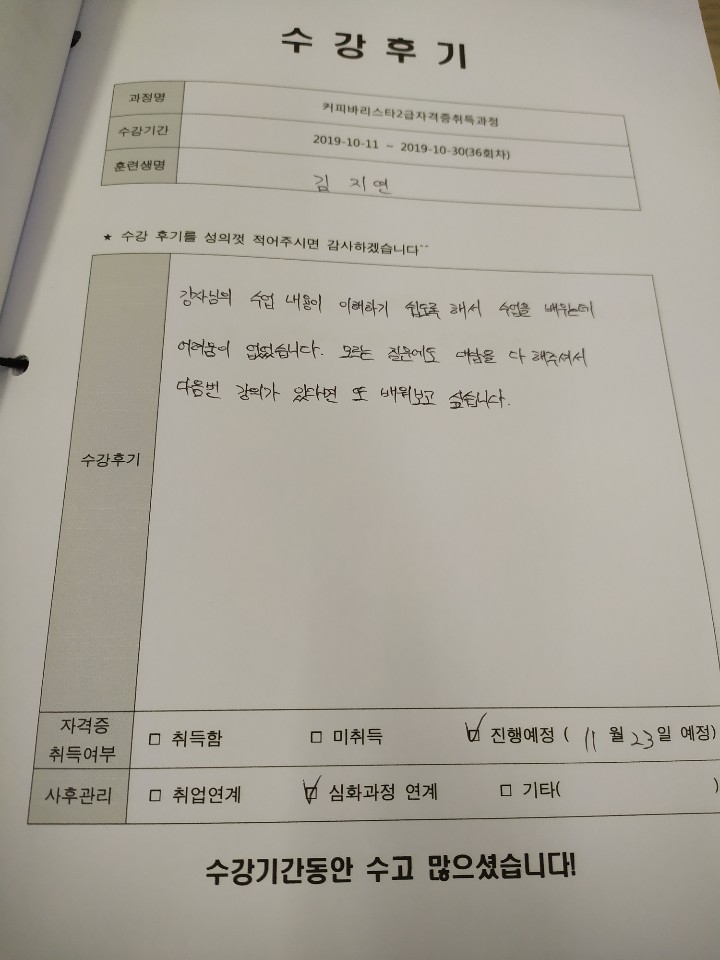 수강후기
과정명 커피바리스타2급자격증취득과정
수강기간 2019-10-11 ~ 2019-10-30(36회차)
훈련생명 김지연
★ 수강 후기를 성의껏 적어주시면 감사하겠습니다^^
강사님의 수업 내용이 이해하기 쉽도록 해서 수업을 배우는데
어려움이 없었습니다. 모르는 질문에도 대답을 다 해주셔서
다음번 강의가 있다면 또 배워보고 싶습니다.
수강후기
자격증
취득여부 □ 취득함 □ 미취득 ☑ 진행예정 ( 11 월 23일 예정)
사후관리 □ 취업연계 ☑ 심화과정 연계 □ 기타( )
수강기간동안 수고 많으셨습니다!